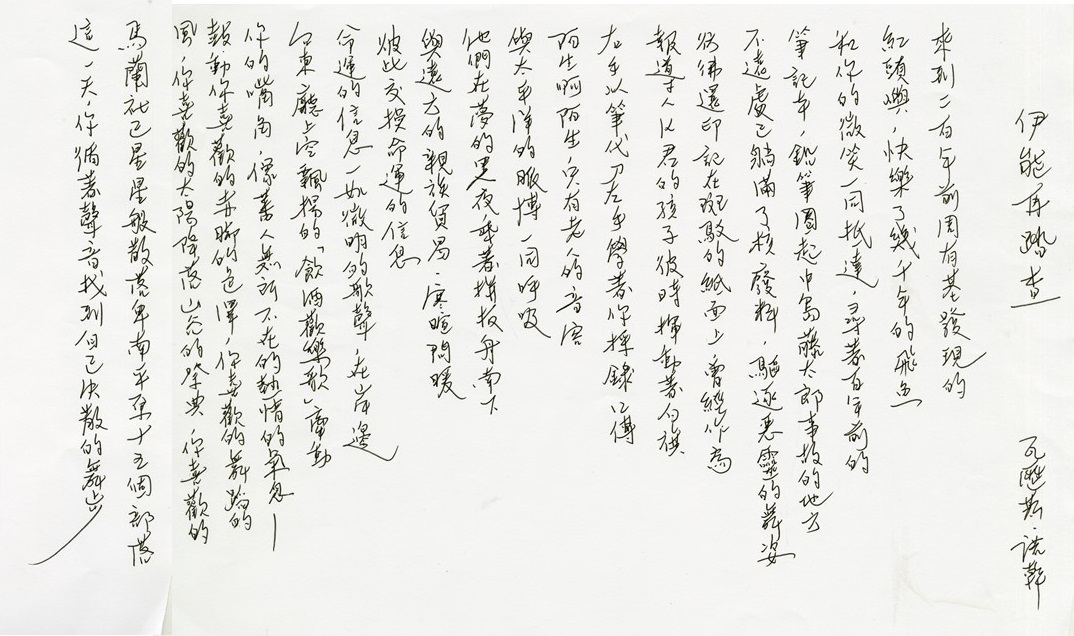 伊能再踏查
瓦歷斯・諾幹
來到二百年前國有基發現的
紅頭嶼，快樂了幾千年的飛魚
和你的微笑一同抵達，尋著百年前的
筆記本，鉛筆圈起中島藤太郎事故的地方
不遠處已躺滿了核廢料，驅逐惡靈的舞姿
彷彿還印記在斑駁的紙面上，曾經作為
報導士人以君的孩子彼時揮動著白旗
右手以筆代刀左手學著你採錄口傳
陌生啊陌生，只有老人的音容
與太平洋的脈搏一同呼吸
他們在夢的黑夜乘著拼板舟南下
與遠方的親族貿易，寒暄問暖
彼此交換命運的信息
命運的信息一如微明的歌聲，在岸邊
台東廳上空飄揚的「飲酒歡樂歌」牽動
你的嘴角，像蕃人無所不在的熱情的氣息—
鼓動你喜歡的赤腳的色澤，你喜歡的舞蹈的
風，你喜歡的太陽降落山谷的祭典，你喜歡的
馬蘭社已星星般散落卑南平原十五個部落
這一天，你循著聲音找到自己決散的舞步